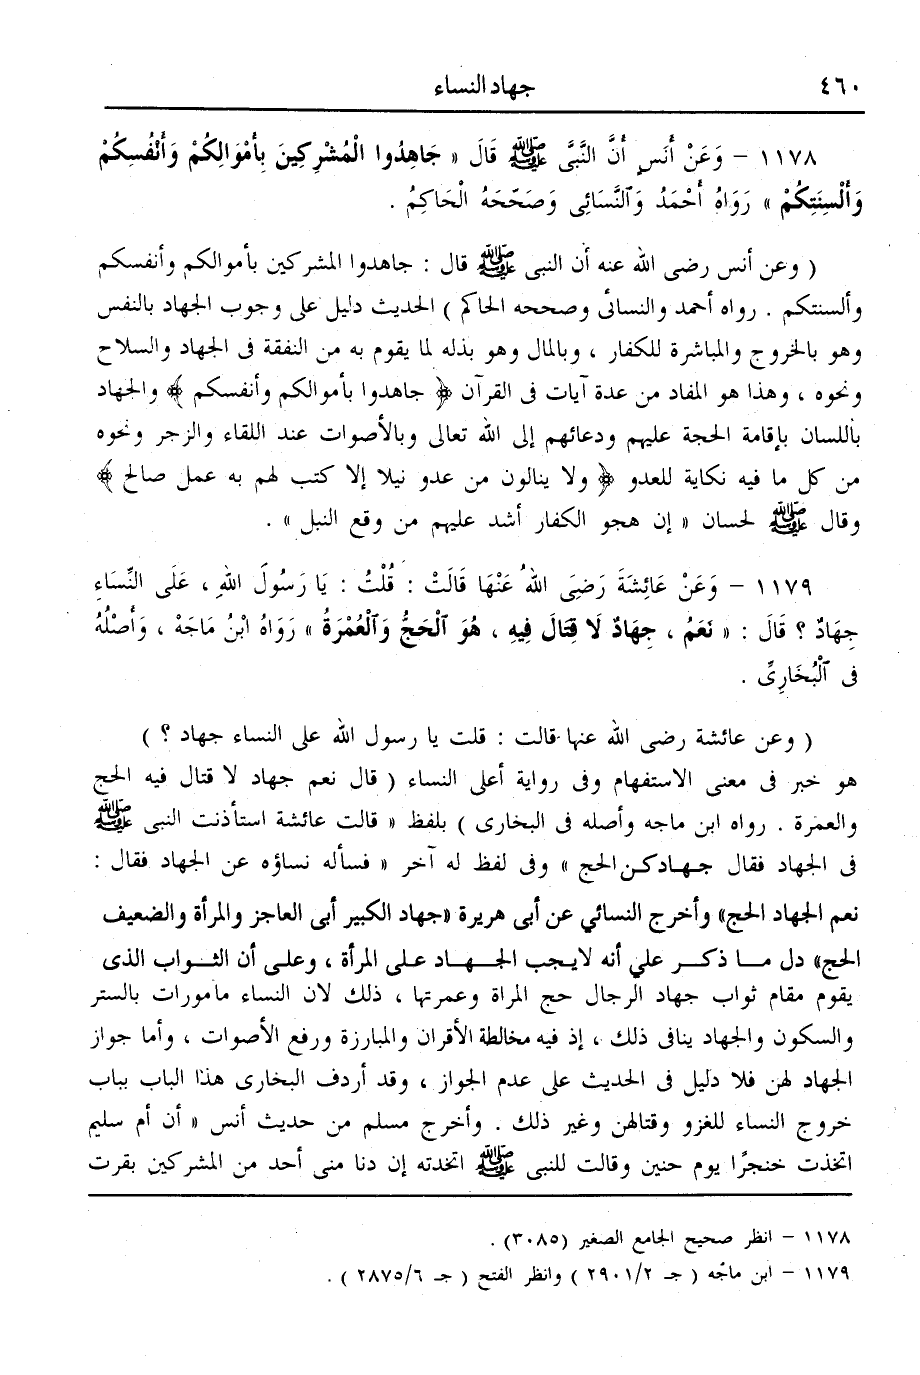 ٤٦٠ جهاد النساء
١١٧٨ – وَعَنْ أَنَسٍ أَنَّ النَّبِيَّ ﷺ قَالَ « جَاهِدُوا الْمُشْرِكِينَ بِأَمْوَالِكُمْ وَأَنْفُسِكُمْ
وَأَلْسِنَتِكُمْ » رَوَاهُ أَحْمَدُ وَالنَّسَائِى وَصَحّحَهُ الْحَاكِمُ .
( وعن أنس رضى الله عنه أن النبى ﷺ قال : جاهدوا المشركين بأموالكم وأنفسكم
وألسنتكم . رواه أحمد والنسائى وصححه الحاكم ) الحديث دليل على وجوب الجهاد بالنفس
وهو بالخروج والمباشرة للكفار ، وبالمال وهو بذله لما يقوم به من النفقة فى الجهاد والسلاح
ونحوه ، وهذا هو المفاد من عدة آيات فى القرآن ﴿ جاهدوا بأموالكم وأنفسكم ﴾ والجهاد
باللسان بإقامة الحجة عليهم ودعائهم إلى الله تعالى وبالأصوات عند اللقاء والزجر ونحوه
من كل ما فيه نكاية للعدو ﴿ ولا ينالون من عدو نيلا إلا كتب لهم به عمل صالح ﴾
وقال ﷺ لحسان « إن هجو الكفار أشد عليهم من وقع النبل » .
١١٧٩ – وَعَنْ عَائِشَةَ رَضِىَ اللهُ عَنْهَا قَالَتْ : قُلْتُ : يَا رَسُولَ اللهِ ، عَلَى النِّسَاءِ
جِهَادٌ ؟ قَالَ : « نَعَمْ ، جِهَادٌ لَا قِتَالَ فِيهِ ، هُوَ الْحَجُّ وَالْعُمْرَةُ » رَوَاهُ ابْنُ مَاجَهْ ، وَأَصْلُهُ
فى الْبُخَارِىِّ .
( وعن عائشة رضى الله عنها قالت : قلت يا رسول الله على النساء جهاد ؟ )
هو خبر فى معنى الاستفهام وفى رواية أعلى النساء ( قال نعم جهاد لا قتال فيه الحج
والعمرة . رواه ابن ماجه وأصله فى البخارى ) بلفظ « قالت عائشة استأذنت النبى ﷺ
فى الجهاد فقال جهادكن الحج » وفى لفظ له آخر « فسأله نساؤه عن الجهاد فقال :
نعم الجهاد الحج» وأخرج النسائي عن أبى هريرة «جهاد الكبير أبى العاجز والمرأة والضعيف
الحج» دل ما ذكر علي أنه لايجب الجهاد على المرأة ، وعلى أن الثواب الذى
يقوم مقام ثواب جهاد الرجال حج المرأة وعمرتها ، ذلك لان النساء مأمورات بالستر
والسكون والجهاد ينافى ذلك ، إذ فيه مخالطة الأقران والمبارزة ورفع الأصوات ، وأما جواز
الجهاد لهن فلا دليل فى الحديث على عدم الجواز ، وقد أردف البخارى هذا الباب بباب
خروج النساء للغزو وقتالهن وغير ذلك . وأخرج مسلم من حديث أنس « أن أم سليم
اتخذت خنجرًا يوم حنين وقالت للنبى ﷺ اتخدته إن دنا منى أحد من المشركين بقرت
١١٧٨ – انظر صحيح الجامع الصغير (٣٠٨٥) .
١١٧٩ – ابن ماجه ( جـ ٢٩٠١/٢ ) وانظر الفتح ( جـ ٢٨٧٥/٦ ) .